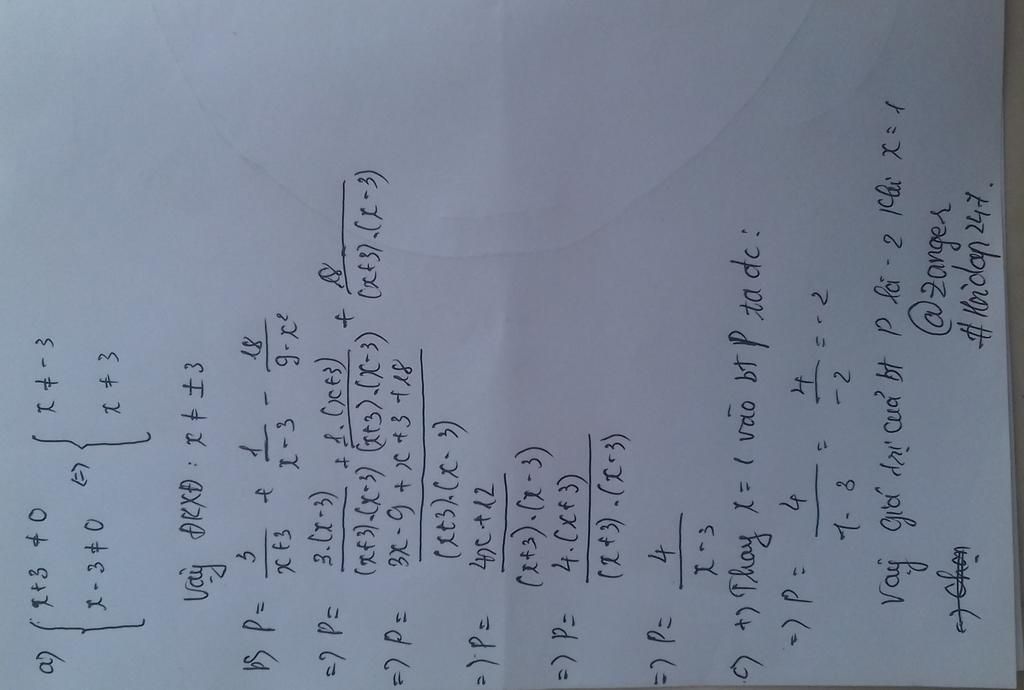 a) { x+3 ≠ 0 <=> { x ≠ -3
x-3 ≠ 0 x ≠ 3
Vậy ĐKXĐ : x ≠ ± 3
b) P = 3/(x+3) + 1/(x-3) - 18/(9-x²)
=> P = 3.(x-3)/((x+3).(x-3)) + 1.(x+3)/((x+3).(x-3)) + 18/((x+3).(x-3))
=> P = (3x-9+x+3+18)/((x+3).(x-3))
=> P = (4x+12)/((x+3).(x-3))
=> P = 4.(x+3)/((x+3).(x-3))
=> P = 4/(x-3)
c) +) Thay x = 1 vào bt P ta dc :
=> P = 4/(1-3) = 4/-2 = -2
Vậy giá trị của bt P là -2 khi x = 1
@zanger
# Hoidap247.